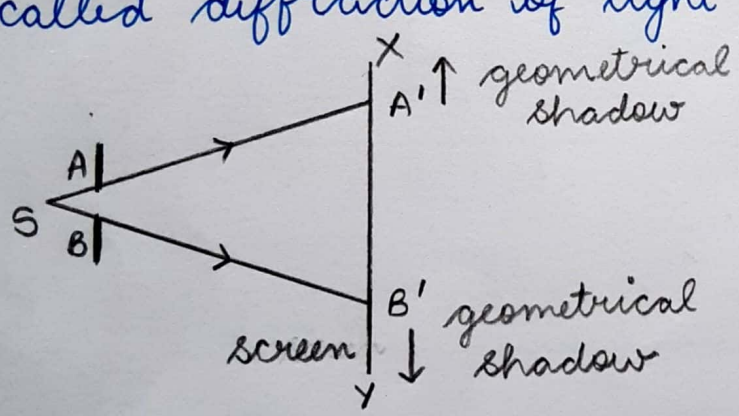 called diffraction of light
X
A' ↑ geometrical
shadow
A
S
B
B' geometrical
screen ↓ shadow
Y